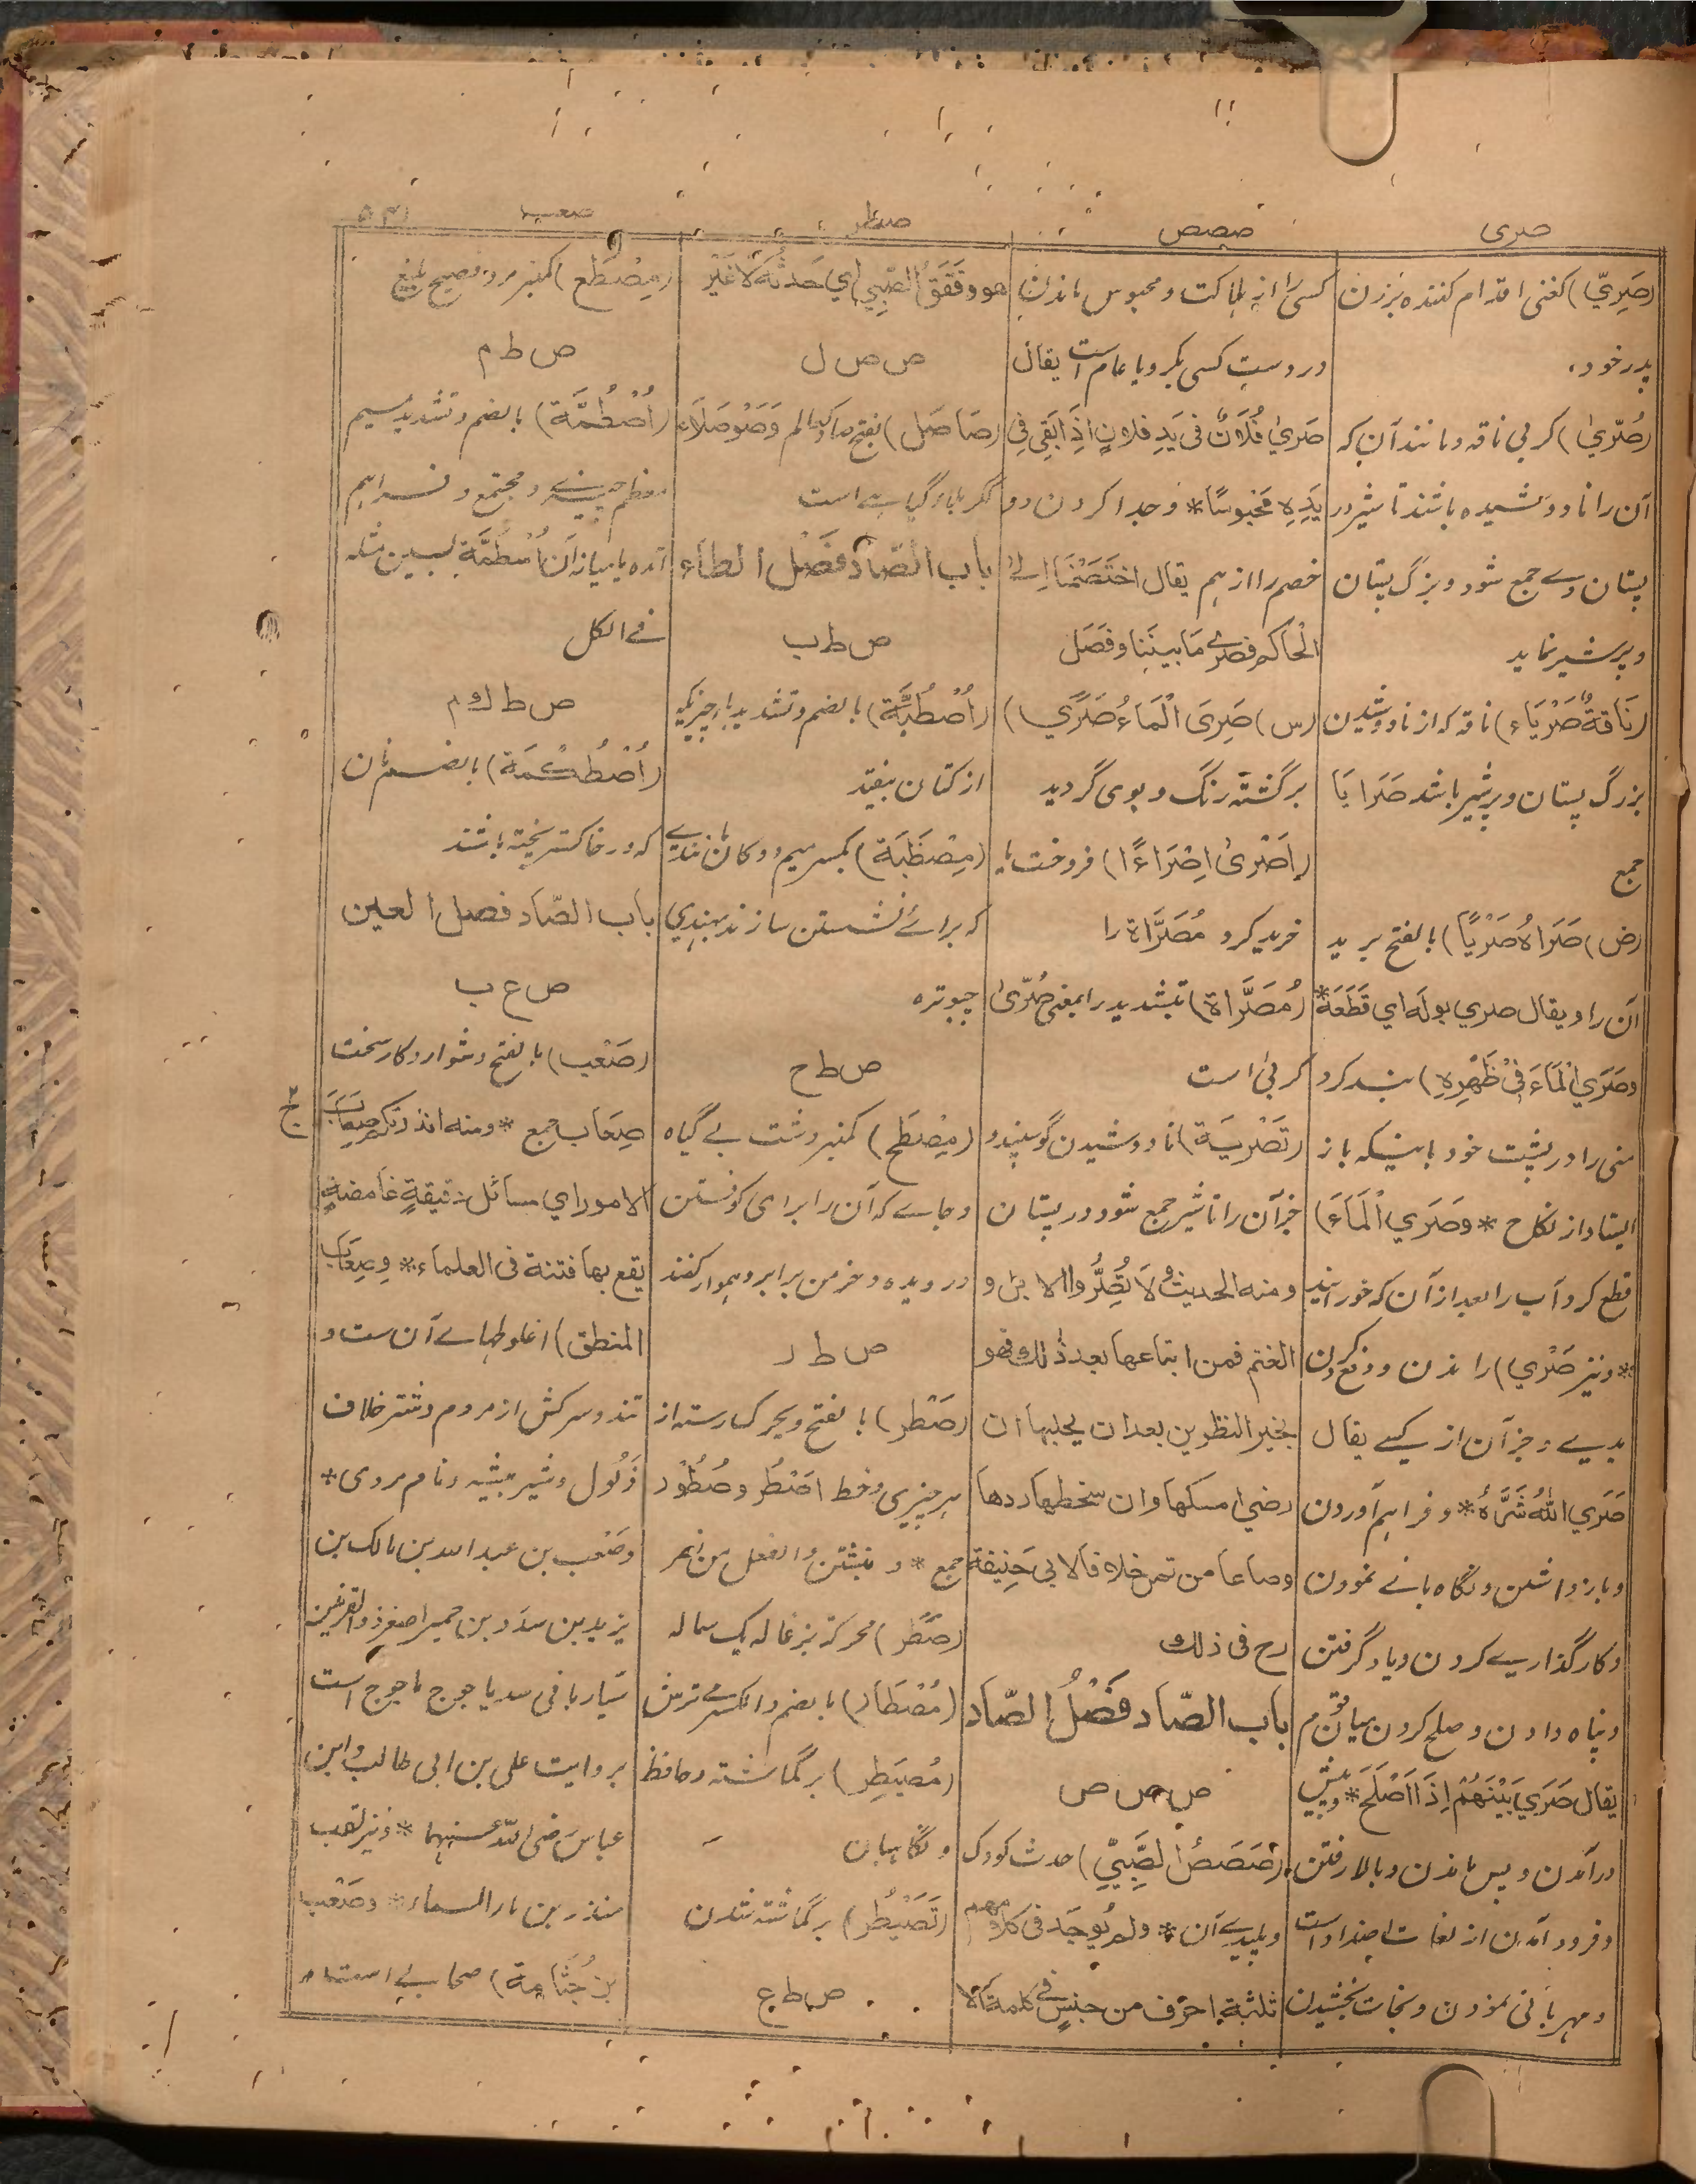 صری
صصص
صطر
صعب
(صَرِيّ) کغنی اقدام کننده بزدن
پدر خود،
(صُرّیٰ) کربی ناقه و مانند آن که
آن را نا دوشیده باشند تا شیر در
پستان وے جمع شود و بزرگ پستان
و پر شیر نماید
(نَاقةٌ صَرْيَاء) ناقه که از نا دوشیدن
بزرگ پستان و پر شیر باشد صَرَايَا
جمع
(ض) صَرَاهُ صَرْيًا) بالفتح برید
آن را و یقال صري بوله اي قَطَعَهُ*
وصَرَي الْمَاءَ فِيْ ظَهْرِهِ) بند کرد
منی را در پشت خود باینکه باز
ایستاد از نکاح * وصَرَي الْمَاءَ)
قطع کرد آب را بعد از آن که خورانید
* و نیز صَرْي) راندن و دفع کردن
بدیے و جز آن از کسے یقال
صَرَي اللهُ شَرَّهُ* و فراهم آوردن
و باز داشتن و نگاه بانے نمودن
و کار گذاریے کردن و یاد گرفتن
و پناه دادن و صلح کردن میان قوم
یقال صَرَي بَيْنَهُمْ اِذَا اَصْلَحَ* و پیش
در آمدن و پس ماندن و بالا رفتن
و فرود آمدن از لغات اضداد است
و مهربانی نمودن و نجات بخشیدن
کسی را از هلاکت و محبوس ماندن
در دست کسی بگرو یا عام است یقال
صَرِيَ فُلَانٌ فی یَدِ فلانٍ اِذَا بَقِيَ فِي
یَدِهِ مَحْبُوسًا* و جدا کردن دو
خصم را از هم یقال اخْتَصَمْنَا اِلَے
الْحَاکم فصرے مَا بینَنا و فَصَلَ
(س) صَرِيَ الْمَاءُ صَرًي)
برگشته رنگ و بوی گردید
(اَصْرَیٰ اِصْرَاءً) فروخت یا
خرید کرد مُصَرَّاة را
(مُصَرَّاة) بتشدید را بمعنی صُرّیٰ
کربی است
(تَصْرِيَة) نا دوشیدن گوسپند و
جز آن را تا شیر جمع شود در پستان
ومنه الحدیث لَا تُصَرُّوا الابل و
الغنم فمن ابتاعها بعد ذٰلك فهو
بخیر النظرین بعد ان یحلبها ان
رضي امسکها وان سخطها ردها
وصاعا من تمر خلافا لابی حنیفة
رح فی ذلك
باب الصّاد فَصْلُ الصّاد
ص ص ص
(صَصَصُ الصَّبِيِّ) حدث کودک
و پلیدیے آن * ولم یُوجَد فی کلامهم
ثلثة احرف من جنسٍ فے کلمة الّا
هو و قَقَقُ الصَّبِي اي حَدثُهُ لَا غَيْر
ص ص ل
(صَاصَل) بفتح صاد کعالم وَصَوْصَلَاء
گیاہے است
باب الصّاد فَصْل الطاء
ص ط ب
(اُصْطُبَّة) بالضم و تشدید باء چیزیکه
از کتان بیفتد
(مِصْطَبَة) بکسر میم دوکان مانندیے
که برائے نشستن سازند بهندي
چبوتره
ص ط ح
(مِصْطَح) کمنبر دشت بے گیاه
و جاے که آن را برای کوفتن
درویده و خرمن برابر و هموار کنند
ص ط ر
(صَطْر) بالفتح و یحرک رسته از
هر چیزی و خط اَصْطُر و صُطُوْر
جمع * و نبشتن والفعل من نصر
(صَطَر) محرکة بزغاله یک ساله
(مُصْطَار) بالضم والکسر مے ترش
(مُصَيْطِر) برگماشته و حافظ
و نگاهبان
(تَصَيْطُر) برگماشته شدن
ص ط ع
(مِصْطَع) کمنبر مرد فصیح بلیغ
ص ط م
(اُصْطُمَّة) بالضم و تشدید میم
معظم چیزے و مجتمع و فراهم
آمده یا میانه آن اُسْطُمَّة بسین مثله
فے الکل
ص ط ك م
(اُصْطُكْمَة) بالضم نان
که در خاکستر پخته باشند
باب الصّاد فصل العین
ص ع ب
(صَعْب) بالفتح دشوار و کار سخت
صِعَاب جمع * ومنه انذرتکم صِعَابَ
الامور اي مسائل دقیقةٍ غامضةٍ
یقع بها فتنة فی العلماء* وصِعَاب
المنطق) اغلوطهاے آن ست و
تند و سرکش از مردم و شتر خلاف
ذَلُول و شیر بیشه و نام مردی *
وصَعْب بن عبد الله بن مالک بن
یزید بن سدد بن حمیر اصغر ذو القرنین
سیار بانی سد یاجوج ماجوج است
بروایت علی بن ابی طالب و ابن
عباس رضی اللّٰه عنهما * و نیز لقب
منذر بن ماء السماء * وصَعْب
بن جُثَّامة) صحابیے است